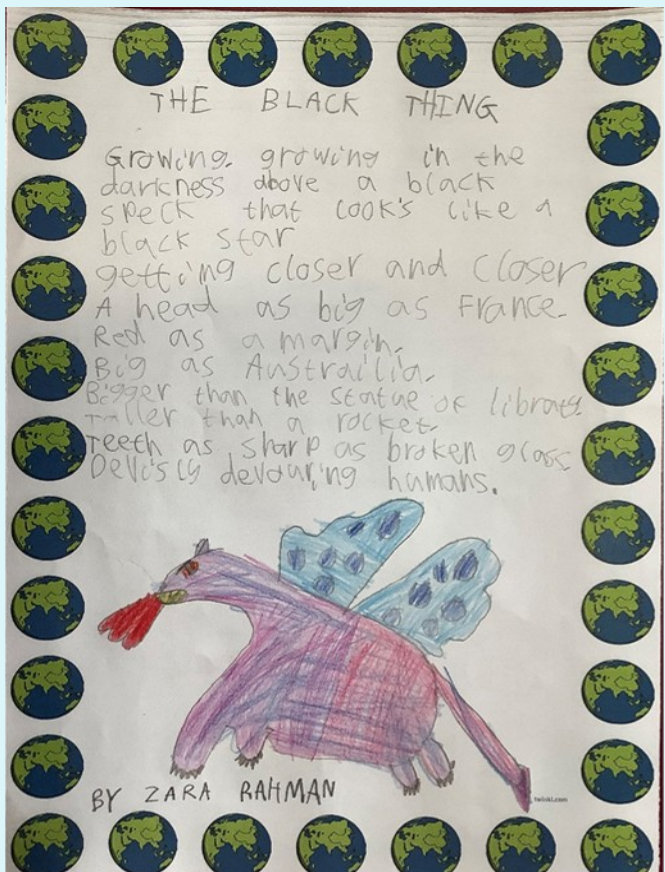 THE BLACK THING
Growing. growing in the
darkness above a black
speck that look's like a
black star
getting closer and closer
A head as big as France.
Red as a margin.
Big as Austrailia.
Bigger than the statue of librats.
Taller than a rocket.
Teeth as sharp as broken glass.
Devisly devouring humans.
BY ZARA RAHMAN
twinkl.com